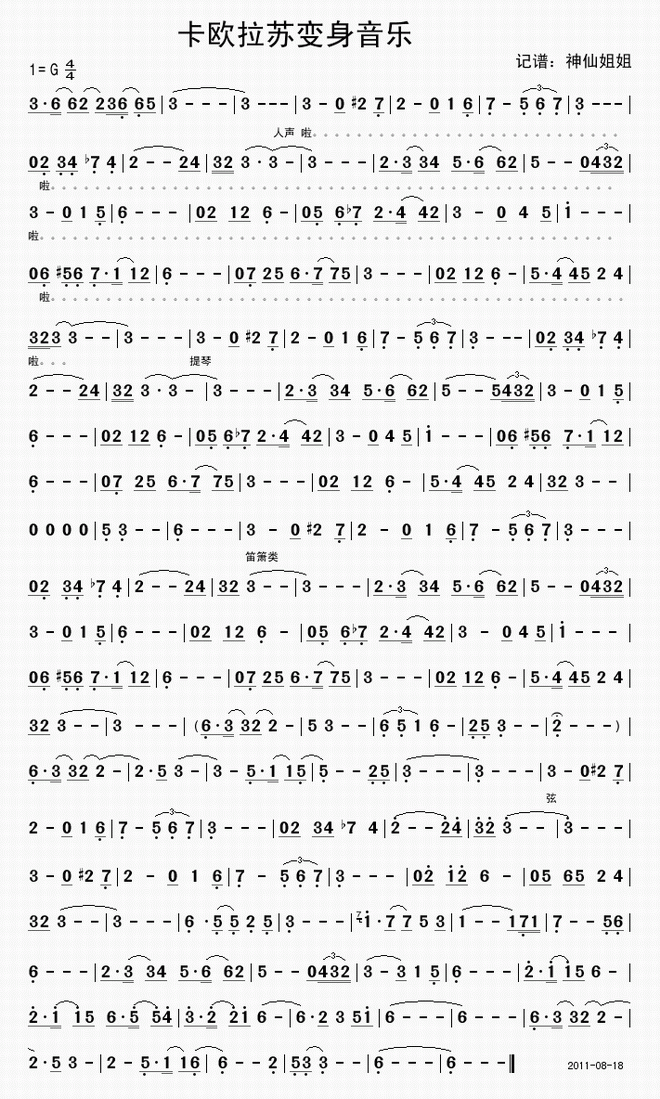 卡欧拉苏变身音乐
1=G 4/4
记谱：神仙姐姐
3·6 62 236 65|3 - - -|3 - - -|3 - 0 #2 7|2 - 0 1 6|7 - 5 6 7|3 - - -|
人声 啦。。。。。。。。。。。。。。。。。。。。。。。。。。
02 34 ♭7 4|2 - - 24|32 3·3 -|3 - - -|2·3 34 5·6 62|5 - - 0432|
啦。。。。。。。。。。。。。。。。。。。。。。。。。。。。。。。。。。。。。。。。。。。。。。。。
3 - 0 1 5|6 - - -|02 12 6 -|05 6♭7 2·4 42|3 - 0 4 5|i - - -|
啦。。。。。。。。。。。。。。。。。。。。。。。。。。。。。。。。。。。。。。。。。。。。。。。。。
06 #56 7·1 12|6 - - -|07 25 6·7 75|3 - - -|02 12 6 -|5·4 45 2 4|
啦。。。。。。。。。。。。。。。。。。。。。。。。。。。。。。。。。。。。。。。。。。。。。。。。。
323 3 - -|3 - - -|3 - 0 #2 7|2 - 0 1 6|7 - 5 6 7|3 - - -|02 34 ♭7 4|
啦。。。 提琴
2 - - 24|32 3·3 -|3 - - -|2·3 34 5·6 62|5 - - 5432|3 - 0 1 5|
6 - - -|02 12 6 -|05 6♭7 2·4 42|3 - 0 4 5|i - - -|06 #56 7·1 12|
6 - - -|07 25 6·7 75|3 - - -|02 12 6 -|5·4 45 2 4|32 3 - -|
0 0 0 0|5 3 - -|6 - - -|3 - 0 #2 7|2 - 0 1 6|7 - 5 6 7|3 - - -|
笛箫类
02 34 ♭7 4|2 - - 24|32 3 - -|3 - - -|2·3 34 5·6 62|5 - - 0432|
3 - 0 1 5|6 - - -|02 12 6 -|05 6♭7 2·4 42|3 - 0 4 5|i - - -|
06 #56 7·1 12|6 - - -|07 25 6·7 75|3 - - -|02 12 6 -|5·4 45 2 4|
32 3 - -|3 - - -|(6·3 32 2 -|5 3 - -|6 5 1 6 -|25 3 - -|2 - - -)|
6·3 32 2 -|2·5 3 -|3 - 5·1 15|5 - - 25|3 - - -|3 - - -|3 - 0 #2 7|
弦
2 - 0 1 6|7 - 5 6 7|3 - - -|02 34 ♭7 4|2 - - 24|32 3 - -|3 - - -|
3 - 0 #2 7|2 - 0 1 6|7 - 5 6 7|3 - - -|02 12 6 -|05 65 2 4|
32 3 - -|3 - - -|6 ·5 5 2 5|3 - - -|7 i·7 7 5 3|1 - - 171|7 - - 56|
6 - - -|2·3 34 5·6 62|5 - - 0432|3 - 3 1 5|6 - - -|2·1 15 6 -|
2·1 15 6·5 54|3·2 21 6 -|6·2 3 51|6 - - -|6 - - -|6·3 32 2 -|
2·5 3 -|2 - 5·1 16|6 - - 2|53 3 - -|6 - - -|6 - - -‖
2011-08-18